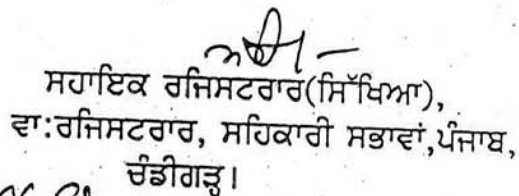 ਸਹਾਇਕ ਰਜਿਸਟਰਾਰ(ਸਿੱਖਿਆ),
ਵਾ:ਰਜਿਸਟਰਾਰ, ਸਹਿਕਾਰੀ ਸਭਾਵਾਂ,ਪੰਜਾਬ,
ਚੰਡੀਗੜ੍ਹ।